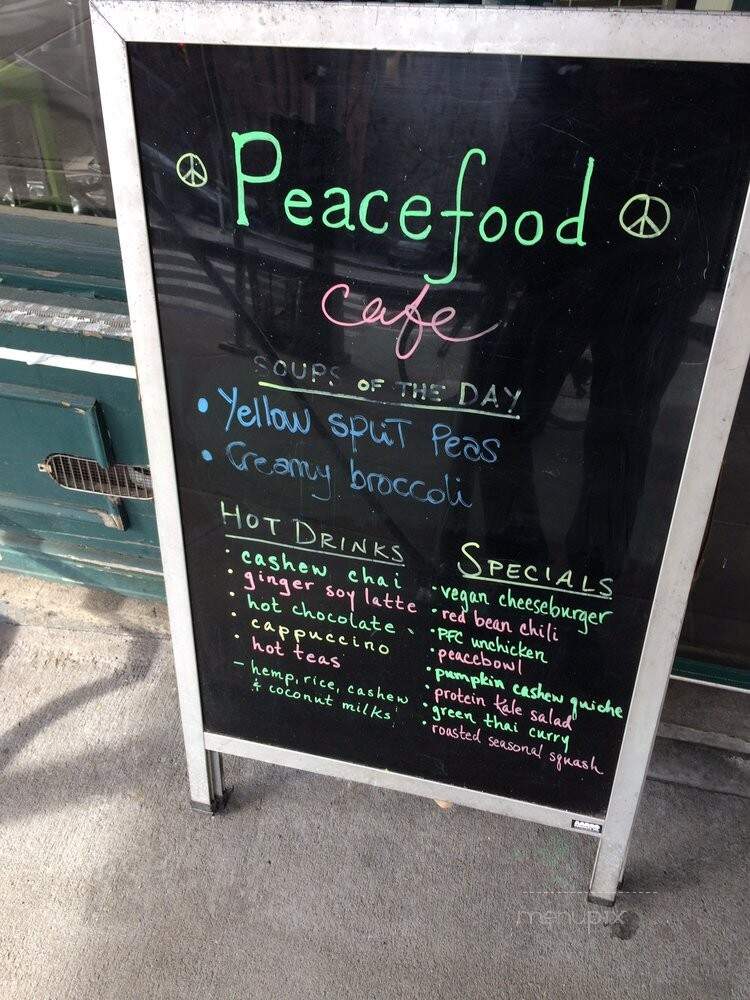 Peacefood
cafe
SOUPS OF THE DAY
• Yellow split Peas
• Creamy broccoli
HOT DRINKS
• cashew chai
• ginger soy latte
• hot chocolate
• cappuccino
• hot teas
- hemp, rice, cashew
& coconut milks
SPECIALS
• vegan cheeseburger
• red bean chili
• PFC unchicken
• peacebowl
• pumpkin cashew quiche
• protein kale salad
• green thai curry
• roasted seasonal squash
menupix